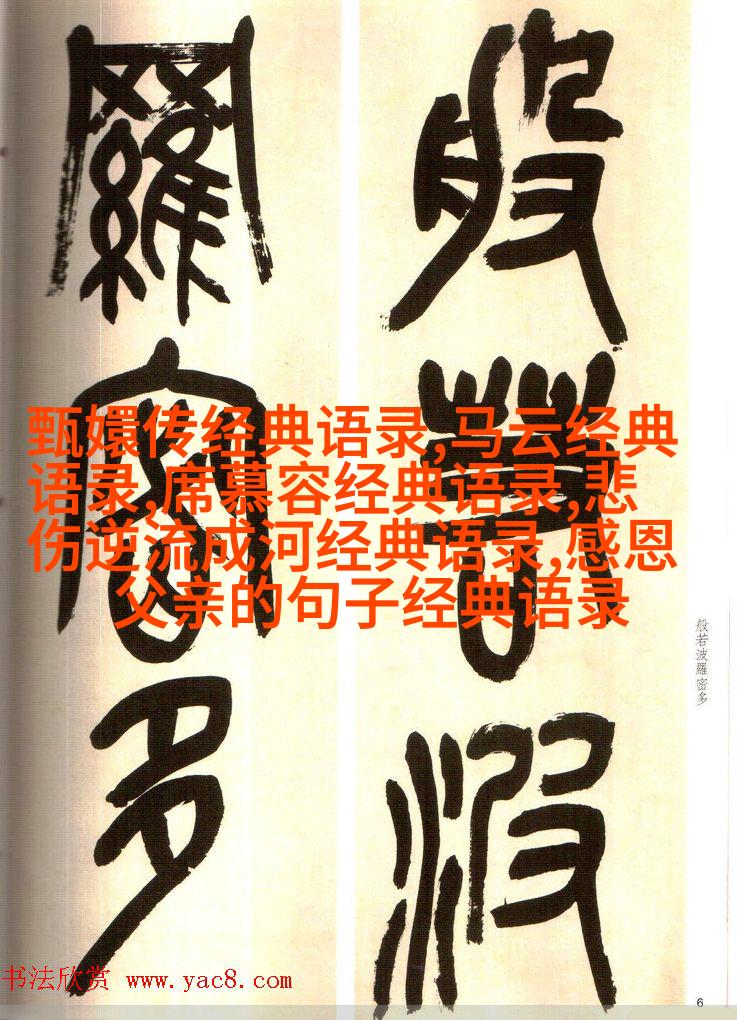 般若波
羅密多
甄嬛传经典语录,马云经典
语录,席慕容经典语录,悲
伤逆流成河经典语录,感恩
父亲的句子经典语录
般若波羅密多
书法欣赏 www.yac8.com
6